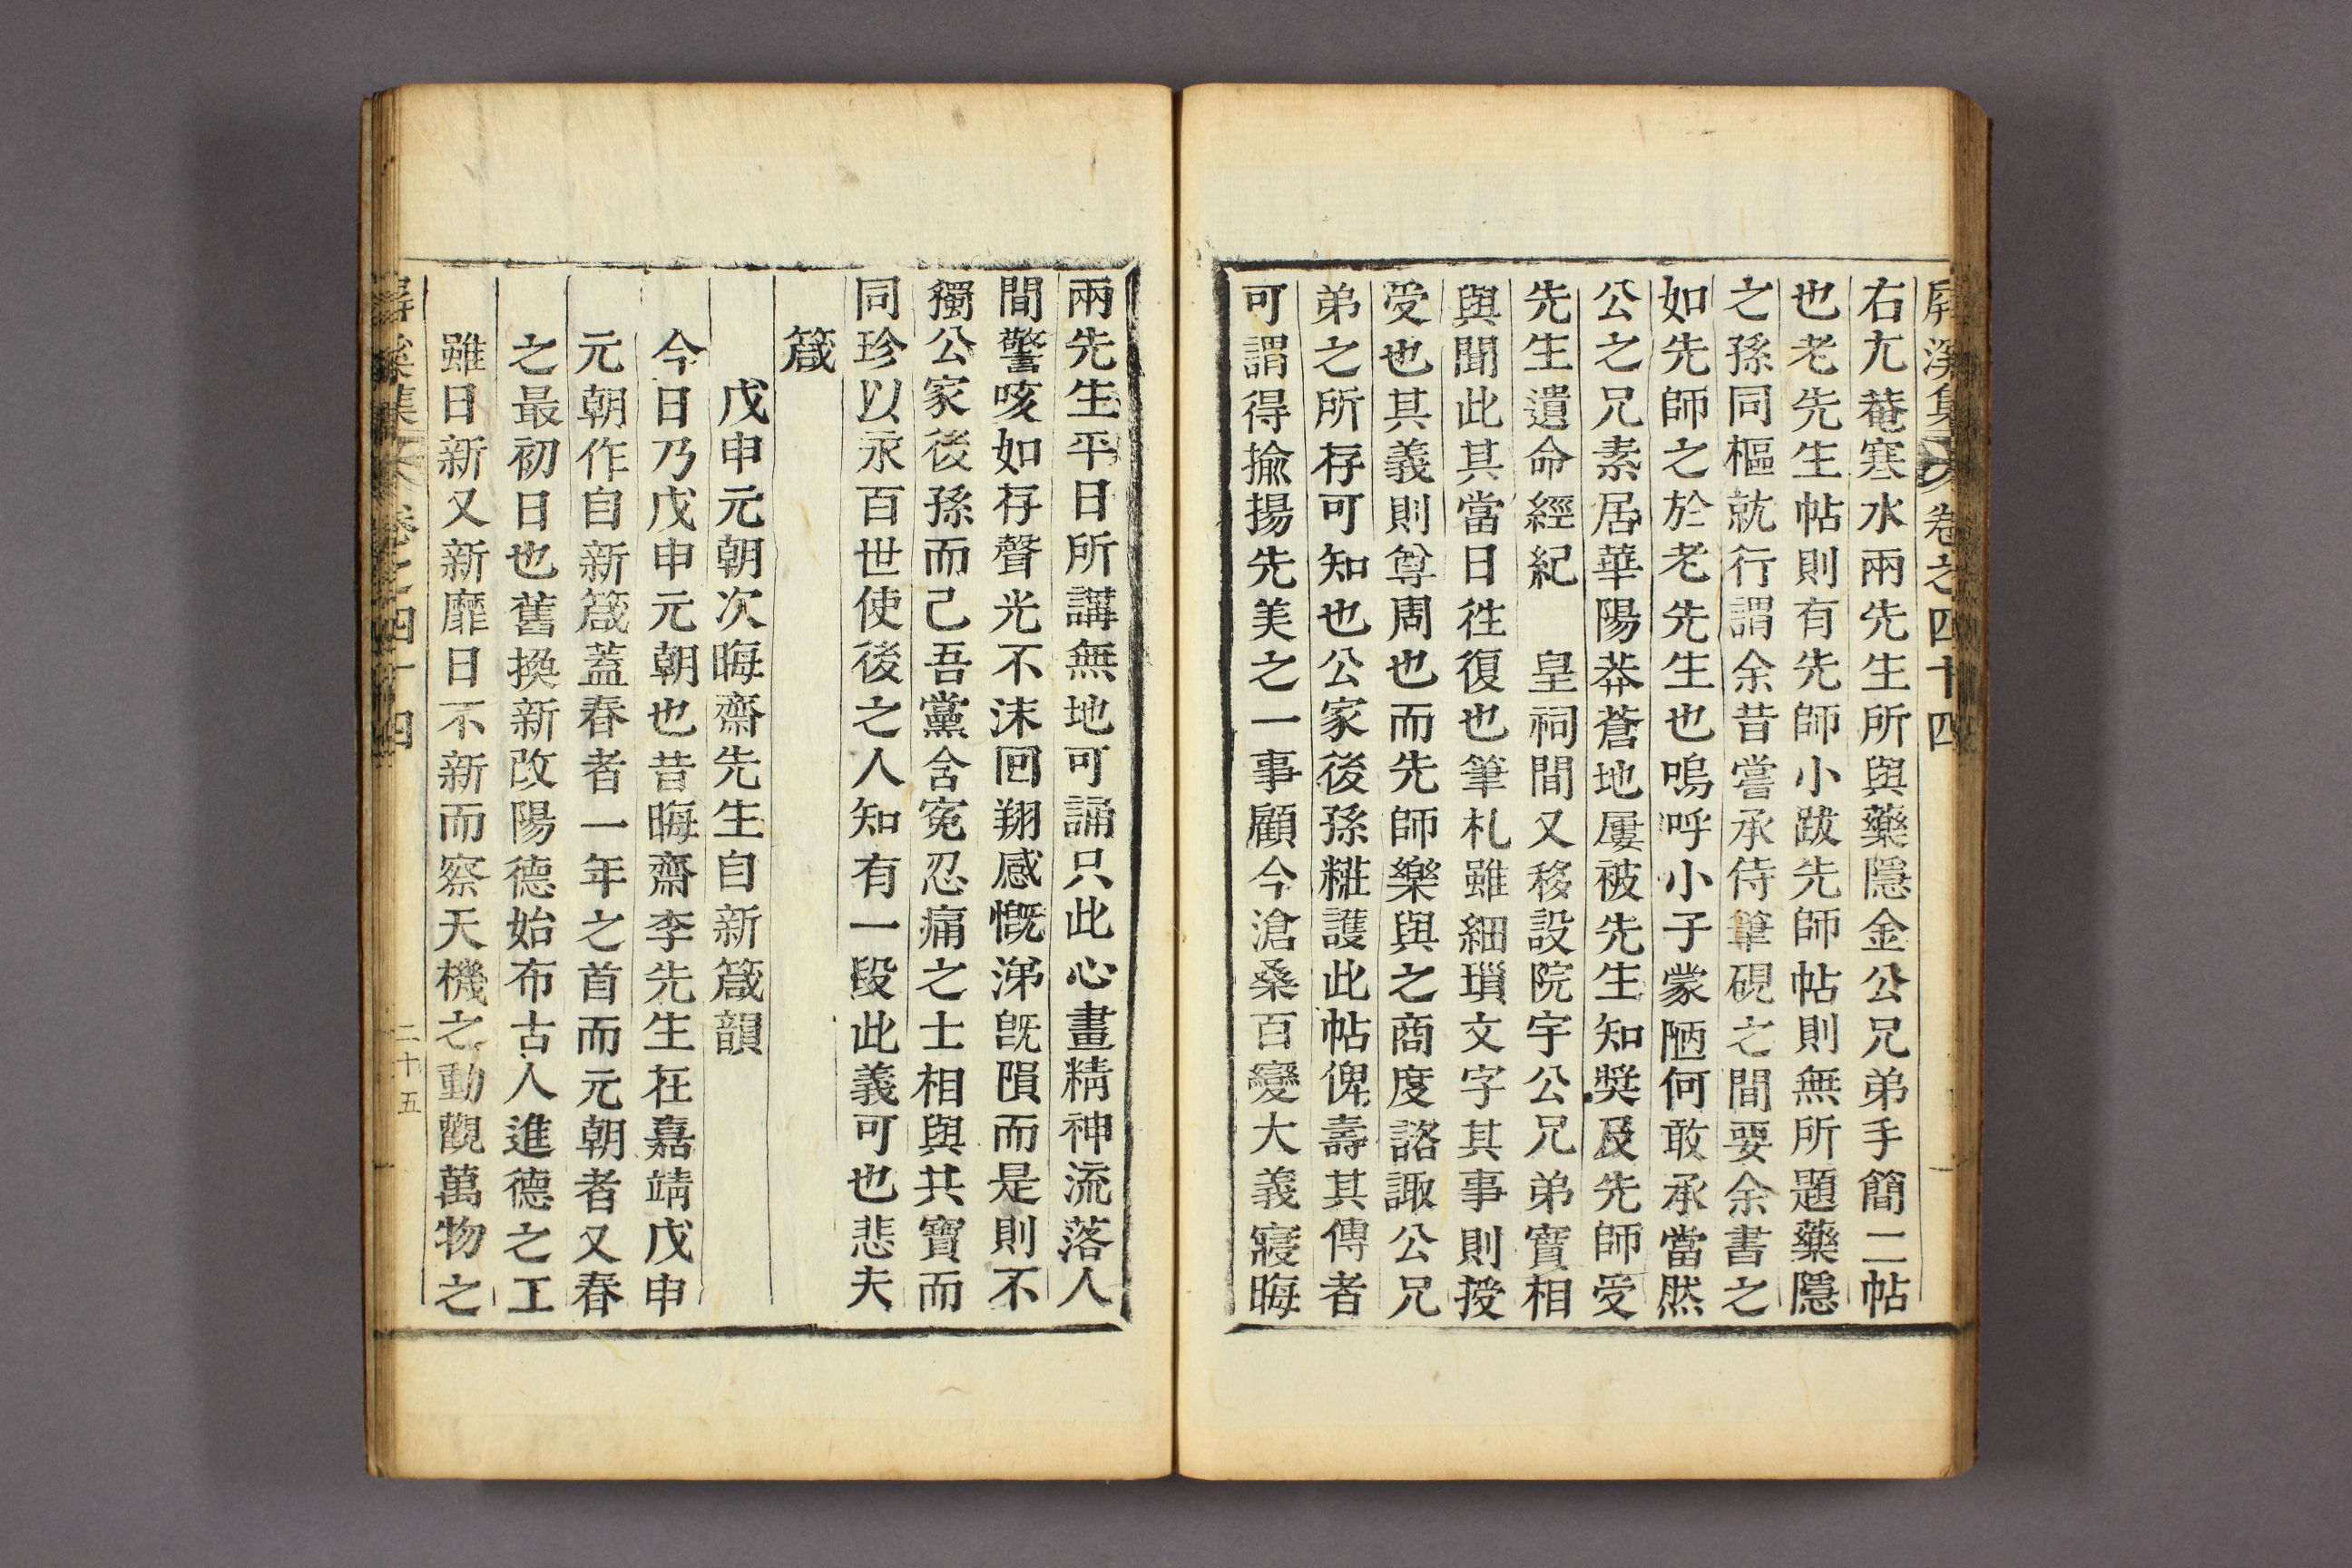 屛溪集 卷之四十四
右尤菴寒水兩先生所與藥隱金公兄弟手簡二帖
也老先生帖則有先師小跋先師帖則無所題藥隱
之孫同樞就行謂余昔嘗承侍筆硯之間要余書之
如先師之於老先生也嗚呼小子蒙陋何敢承當然
公之兄素居華陽莽蒼地屢被先生知奬及先師受
先生遺命經紀 皇祠間又移設院宇公兄弟實相
與聞此其當日徃復也筆札雖細瑣文字其事則授
受也其義則尊周也而先師樂與之商度諮諏公兄
弟之所存可知也公家後孫糚護此帖俾壽其傳者
可謂得揄揚先美之一事顧今滄桑百變大義寢晦
兩先生平日所講無地可誦只此心畫精神流落人
間謦咳如存聲光不沬囘翔感慨涕旣隕而是則不
獨公家後孫而己吾黨含寃忍痛之士相與共寶而
同珍以永百世使後之人知有一段此義可也悲夫
箴
戊申元朝次晦齋先生自新箴韻
今日乃戊申元朝也昔晦齋李先生在嘉靖戊申
元朝作自新箴蓋春者一年之首而元朝者又春
之最初日也舊換新改陽德始布古人進德之工
雖日新又新靡日不新而察天機之動觀萬物之
屛溪集 卷之四十四 二十五